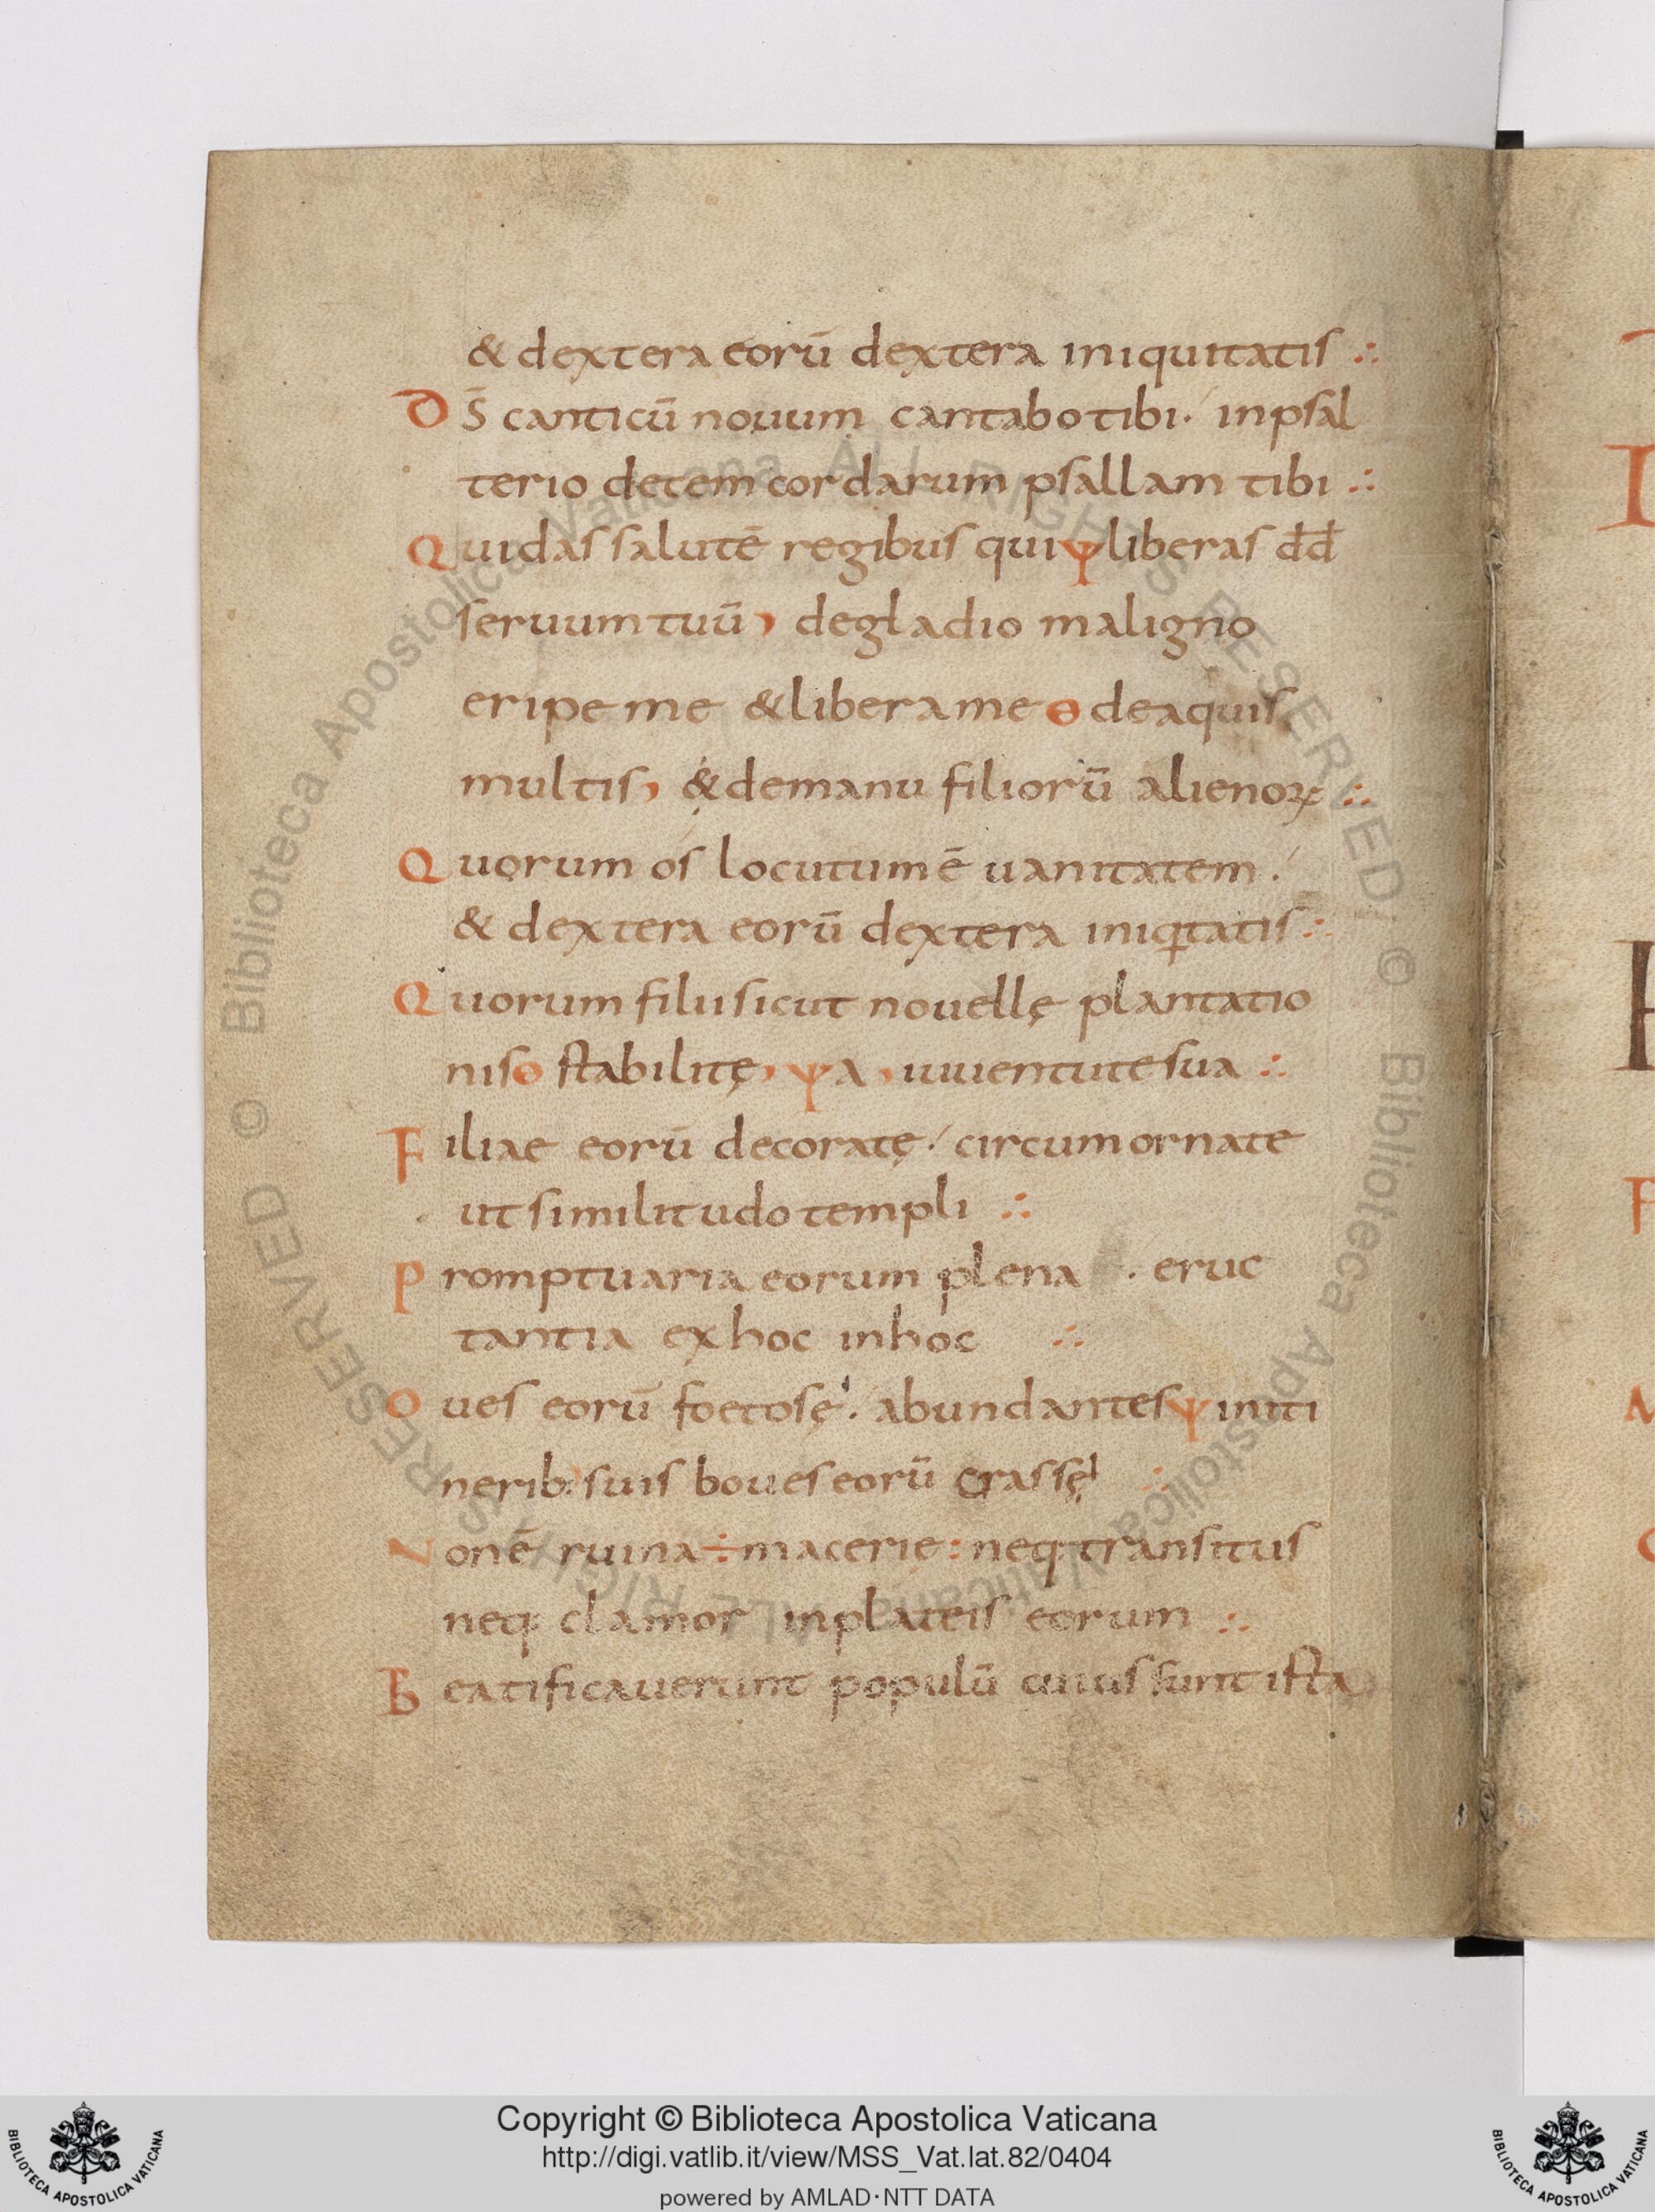 & dextera eorū dextera iniquitatis ∴
D S̄ canticū nouum cantabo tibi ·/ inpsal
terio decem cordarum psallam tibi ∴
Quidas salutē regibus qui ψ liberas d̄d̄
seruum tuū, degladio maligno
eripe me & libera me Θ deaquis
multis, & demanu filiorū alienoꝝ ∴
Quorum os locutum ē uanitatem ·/
& dextera eorū dextera iniqitatis ∴
Quorum filii sicut nouellę plantatio
nis Θ stabilitę, ψ a, iuuentute sua ∴
Filiae eorū decoratę ·/ circumornate
ut similitudo templi ∴
Promptuaria eorum plena · eruc
tantia exhoc inhoc ∴
Oues eorū foetosę ·/ abundantes ψ initi
nerib; suis boues eorū crassę ∴
Non ē ruina ÷ macerie : neq; transitus
neq; clamor inplateis eorum ∴
Beatificauerunt populū cuius sunt ista
Copyright © Biblioteca Apostolica Vaticana
http://digi.vatlib.it/view/MSS_Vat.lat.82/0404
powered by AMLAD·NTT DATA
BIBLIOTECA APOSTOLICA VATICANA
BIBLIOTECA APOSTOLICA VATICANA